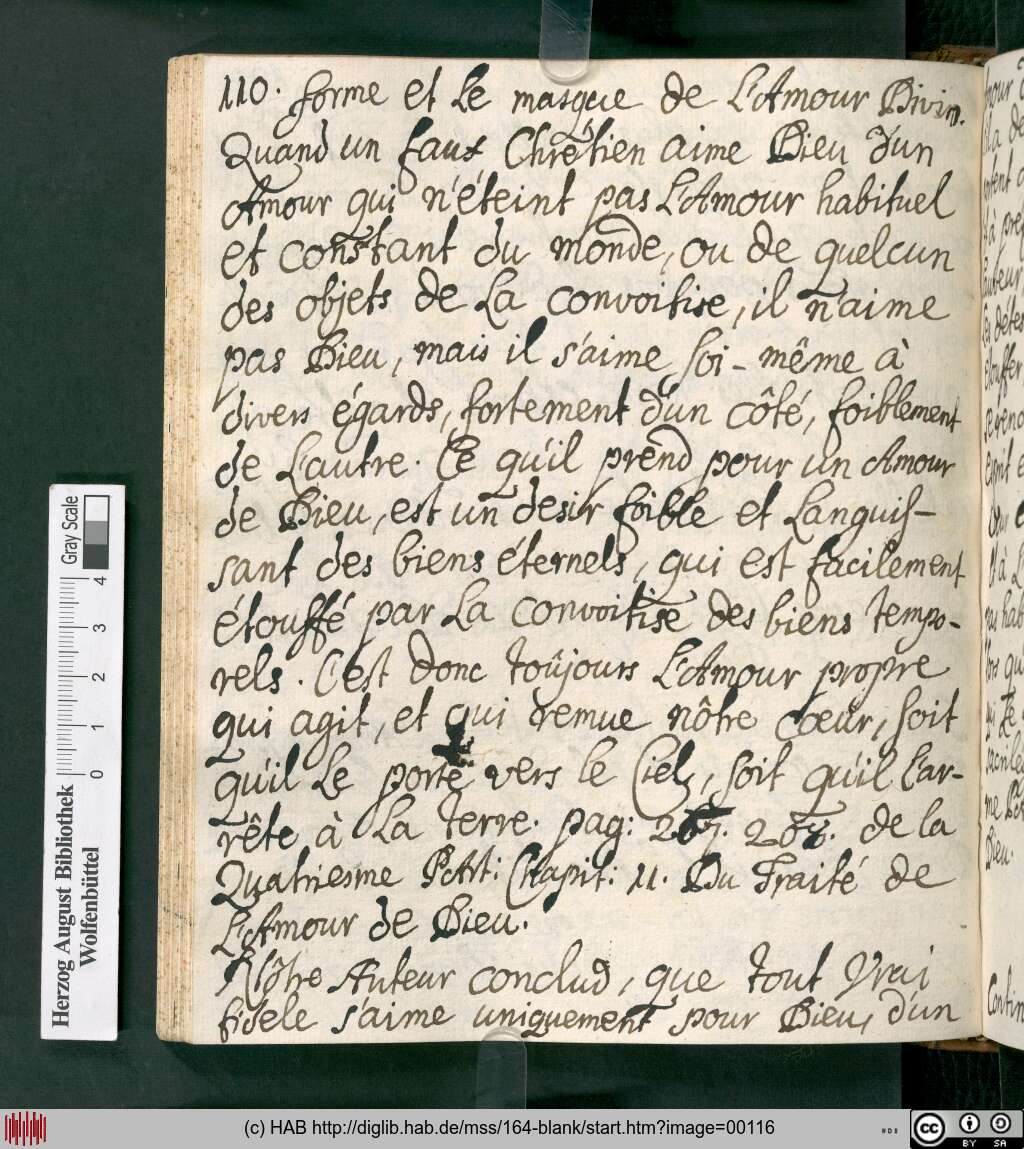 110. forme et Le masque de L'Amour Divin.
Quand un faux Chrêtien aime Dieu d'un
Amour qui n'éteint pas L'Amour habituel
et constant du monde, ou de quelcun
des objets de La convoitise, il n'aime
pas Dieu, mais il s'aime soi-même à
divers égards, fortement d'un côté, foiblement
de L'autre. Ce qu'il prend pour un Amour
de Dieu, est un desir foible et Languis-
sant des biens éternels, qui est facilement
étouffé par La convoitise des biens tempo-
rels. C'est donc toûjours L'Amour propre
qui agit, et qui remue nôtre cœur, soit
qu'il Le porte vers le Ciel, soit qu'il l'ar-
rête à La terre. pag: 267. 268. de la
Quatriesme Part: Chapit: 11. Du Traité de
L'Amour de Dieu.
Nôtre Auteur conclud, que tout Vrai
fidele s'aime uniquement pour Dieu, d'un
Herzog August Bibliothek
Wolfenbüttel
0 1 2 3 4
Gray Scale
(c) HAB http://diglib.hab.de/mss/164-blank/start.htm?image=00116
cc BY SA